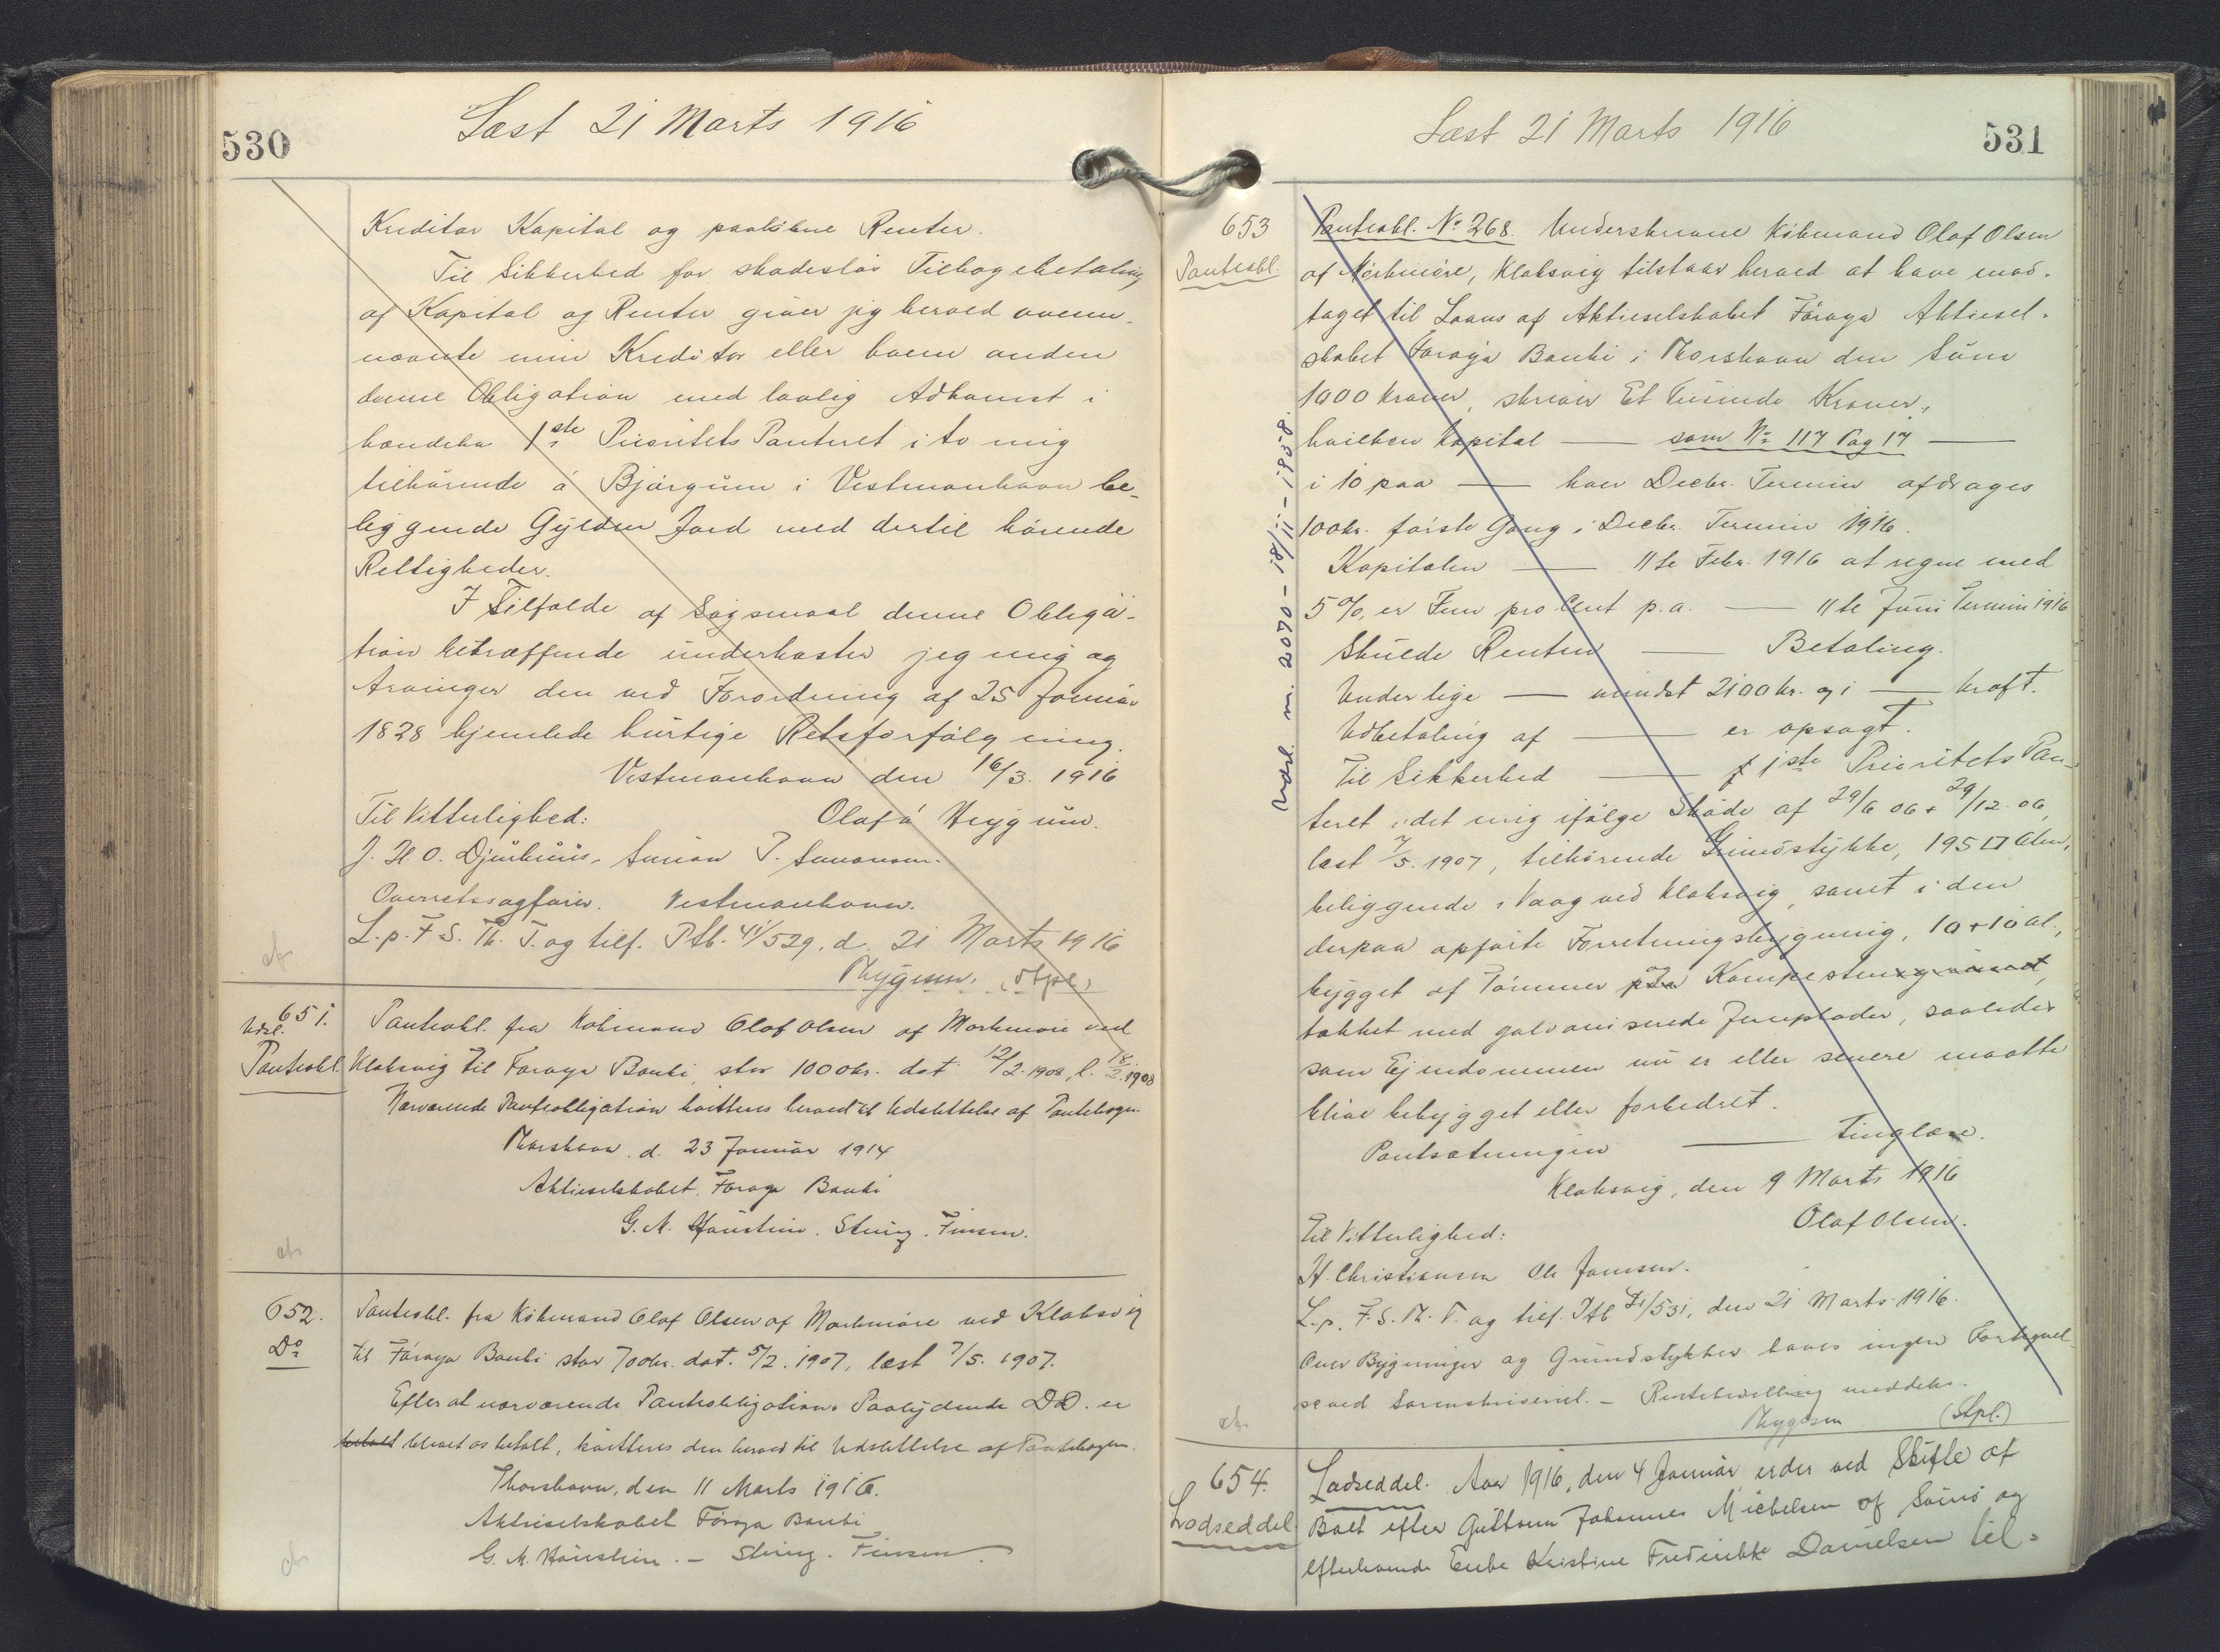 530
Læst 21 Marts 1916
Kreditor Kapital og paaløbne Renter.
Til Sikkerhed for skadesløs Tilbagebetaling
af Kapital og Renter giver jeg herved oven-
nævnte min Kreditor eller hvem anden
denne Obligation med lovlig Adkomst i
hændeha 1ste Prioritets Panteret i to mig
tilhørende á Bjørgum i Vestmanhavn be-
liggende Gylden Jord med dertil hørende
Rettigheder.
I Tilfælde af Søgsmaal denne Obliga-
tion betræffende underkaster jeg mig og
Arvinger den ved Forordning af 25 Januar
1828 hjemlede hurtige Retsforfølgning.
Vestmanhavn den 16/3. 1916
Til Vitterlighed: Olaf á Heygum.
J. H. O. Djurhuus. Simon P. Simonsen.
Overretssagfører. Vestmanhavn.
L. p. F. S. Th. T. og tilf. Ptb. 41/529, d. 21 Marts 1916
Thygesen. (Stpl.)
651.
Udsl.
Panteobl.
Panteobl. fra Købmand Olaf Olsen af Mørkmøre ved
Klaksvig til Føroya Banki, stor 1000kr. dat 12/2. 1908, l. 18/2. 1908
Nærværende Panteobligation kvitteres herved til Udslettelse af Pantebogen.
Thorshavn. d. 23 Januar 1914
Aktieselskabet Føroya Banki
G. M. Haustein. Sträng. Finsen.
652.
Do
Panteobl. fra Købmand Olaf Olsen af Mørkmøre ved Klaksvig
til Føroya Banki stor 700kr. dat. 5/2. 1907, læst 7/5. 1907.
Efter at nærværende Panteobligations Paalydende D.D. er
betalt blevet os betalt, kvitteres den herved til Udslettelse af Pantebogen.
Thorshavn, den 11 Marts 1916.
Aktieselskabet Føroya Banki
G. M. Haustein. – Sträng. Finsen.
531
Læst 21 Marts 1916
653
Panteobl.
Udsl. m. 2070 – 18/11 – 1958.
Panteobl. No 268. Underskrevne Købmand Olaf Olsen
af Mørkmøre, Klaksvig tilstaar herved at have mod-
taget til Laans af Aktieselskabet Føroya Aktiesel-
skabet Føroya Banki i Thorshavn den Sum
1000 Kroner, skriver Et Tusinde Kroner,
hvilken Kapital — som No 117 Pag 17 —
i 10 paa — hver Decbr. Termin afdrages
100kr. første Gang i Decbr. Termin 1916.
Kapitalen — 11te Febr. 1916 at regne med
5 %, er Fem pro Cent p.a. — 11te Juni Termin 1916
Skulde Renten — Betaling.
Underlige — mindst 2100 kr. og i — kraft.
Udbetaling af — er opsagt.
Til Sikkerhed — 1ste Prioritets Pan-
teret i det mig ifølge Skøde af 29/6 06 + 29/12. 06,
læst 7/5. 1907, tilhørende Grundstykke, 195 □ Alen,
beliggende i Vaag ved Klaksvig, samt i den
derpaa opførte Forretningsbygning, 10 + 10 al.,
bygget af Tømmer paa og Kampesten
takket med galvaniserede Jernplader, saaledes
som Ejendommen nu er eller senere maatte
blive bebygget eller forbedret.
Pantsætningen — tinglæse.
Klaksvig, den 9 Marts 1916
Olaf Olsen.
Til Vitterlighed:
H. Christiansen Ole Jamsen.
L. p. F. S. Th. T. og tilf. Ptb 41/531, den 21 Marts 1916.
Over Bygninger og Grundstykker haves ingen Fortegnel-
se ved Sorenskriveriet. – Rentebevilling meddeles.
Thygesen (Stpl.)
654.
Lodseddel
Lodseddel. Aar 1916, den 4 Januar er der ved Skifte af
Boet efter Guttorm Johannes Michelsen af Svinø og
efterlevende Enke Kristine Frederikke Danielsen til-